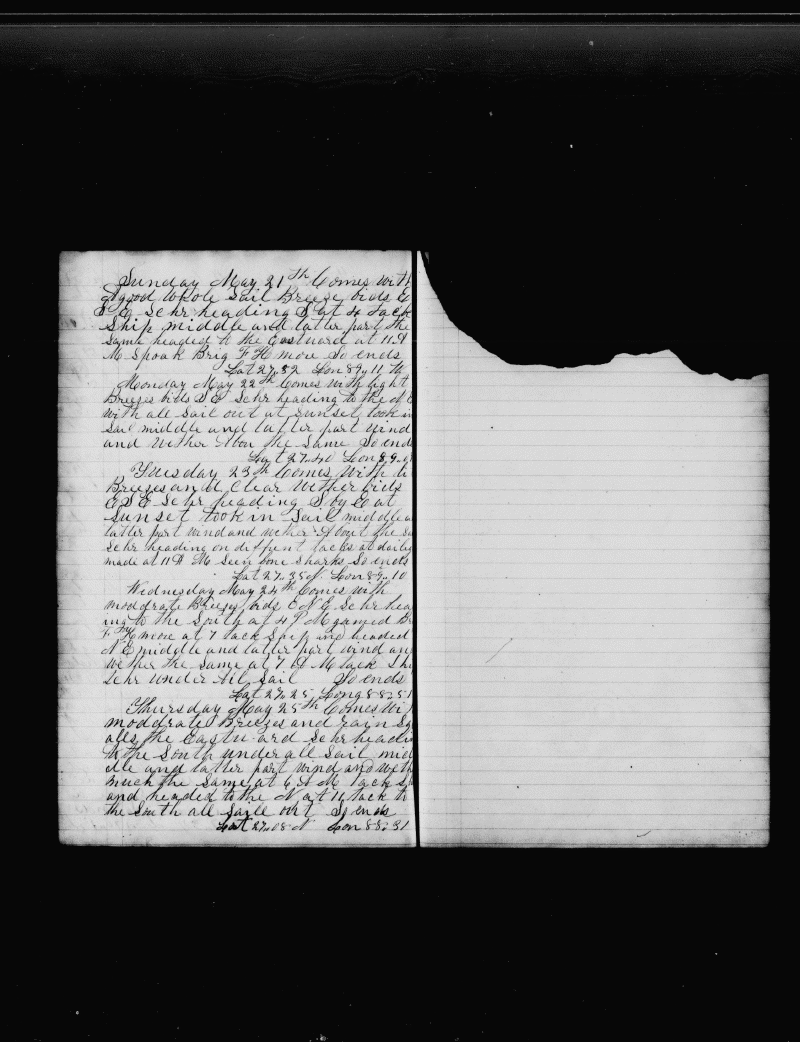 Sunday May 21th Comes with
A good whole Sail Breeze bids E
S E Schr heading S at 4 Tack
Ship middle and latter part the
Same headed to the Eastward at 11 A
M Spoak Brig F H more So ends
Lat 27,,32 Lon 89,,11
Monday May 22th Comes with light
Breezes bids S E Schr heading to the N E
with all Sail out at Sunset took in
Sail middle and latter part wind
and wether the Same So ends
Lat 27,,40 Lon 89,,
Tuesday 23th Comes with
Breezes and Clear Wether bids
E S E Schr heading S by E at
Sunset took in Sail middle a
latter part wind and wether About the Sa
Schr heading on diffent tacks at daily
made at 11 A M Seen bone Sharks So ends
Lat 27,,35 N Lon 89,,10
Wednesday May 24th Comes with
modrate Breezes bids E N E Schr hea
ing to the South at 4 P M gamed Br
F H more at 7 tack Ship and headed
N E middle and latter part wind an
wether the Same at 7 A M tack Shi
Schr under All Sail So ends
Lat 27,,25 Long 88,,51
Thursday May 25th Comes wi
moddrate Breezes and rain Sq
alls the Eastward Schr headi
to the South under all Sail mid
dle and latter part wind and weth
much the Same at 6 A M tack S
and headed to the N at 11 tack to
the South all Saile out So ends
Lat 27,,08 N Lon 88,,31